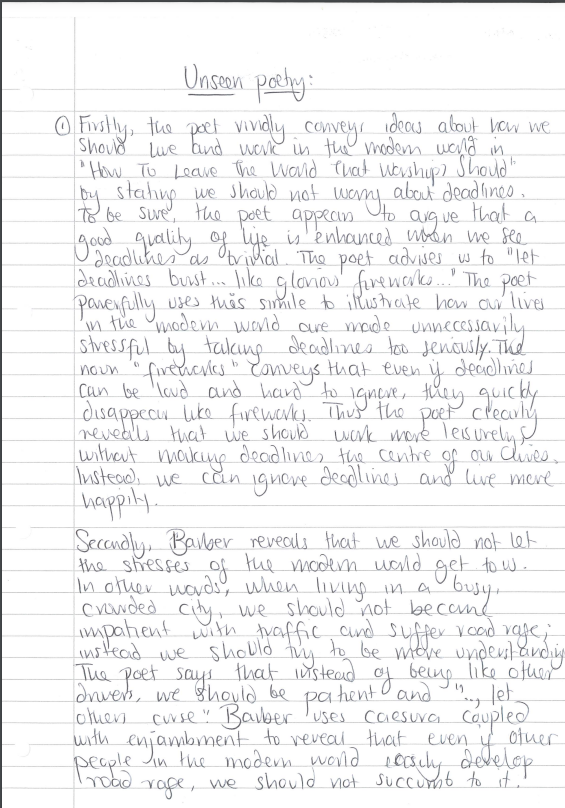 Unseen poetry:
① Firstly, the poet vividly conveys ideas about how we
should live and work in the modern world in
"How To Leave The World That Worships Should"
by stating we should not worry about deadlines.
To be sure, the poet appears to argue that a
good quality of life is enhanced when we see
deadlines as trivial. The poet advises us to "let
deadlines burst... like glorious fireworks..." The poet
powerfully uses this simile to illustrate how our lives
in the modern world are made unnecessarily
stressful by taking deadlines too seriously. The
noun "fireworks" conveys that even if deadlines
can be loud and hard to ignore, they quickly
disappear like fireworks. Thus the poet clearly
reveals that we should work more leisurely,
without making deadlines the centre of our lives.
Instead, we can ignore deadlines and live more
happily.
Secondly, Barber reveals that we should not let
the stresses of the modern world get to us.
In other words, when living in a busy,
crowded city, we should not become
impatient with traffic and suffer road rage;
instead we should try to be more understanding.
The poet says that instead of being like other
drivers, we should be patient and "..., let
others curse". Barber uses caesura coupled
with enjambment to reveal that even if other
people in the modern world easily develop
road rage, we should not succumb to it.